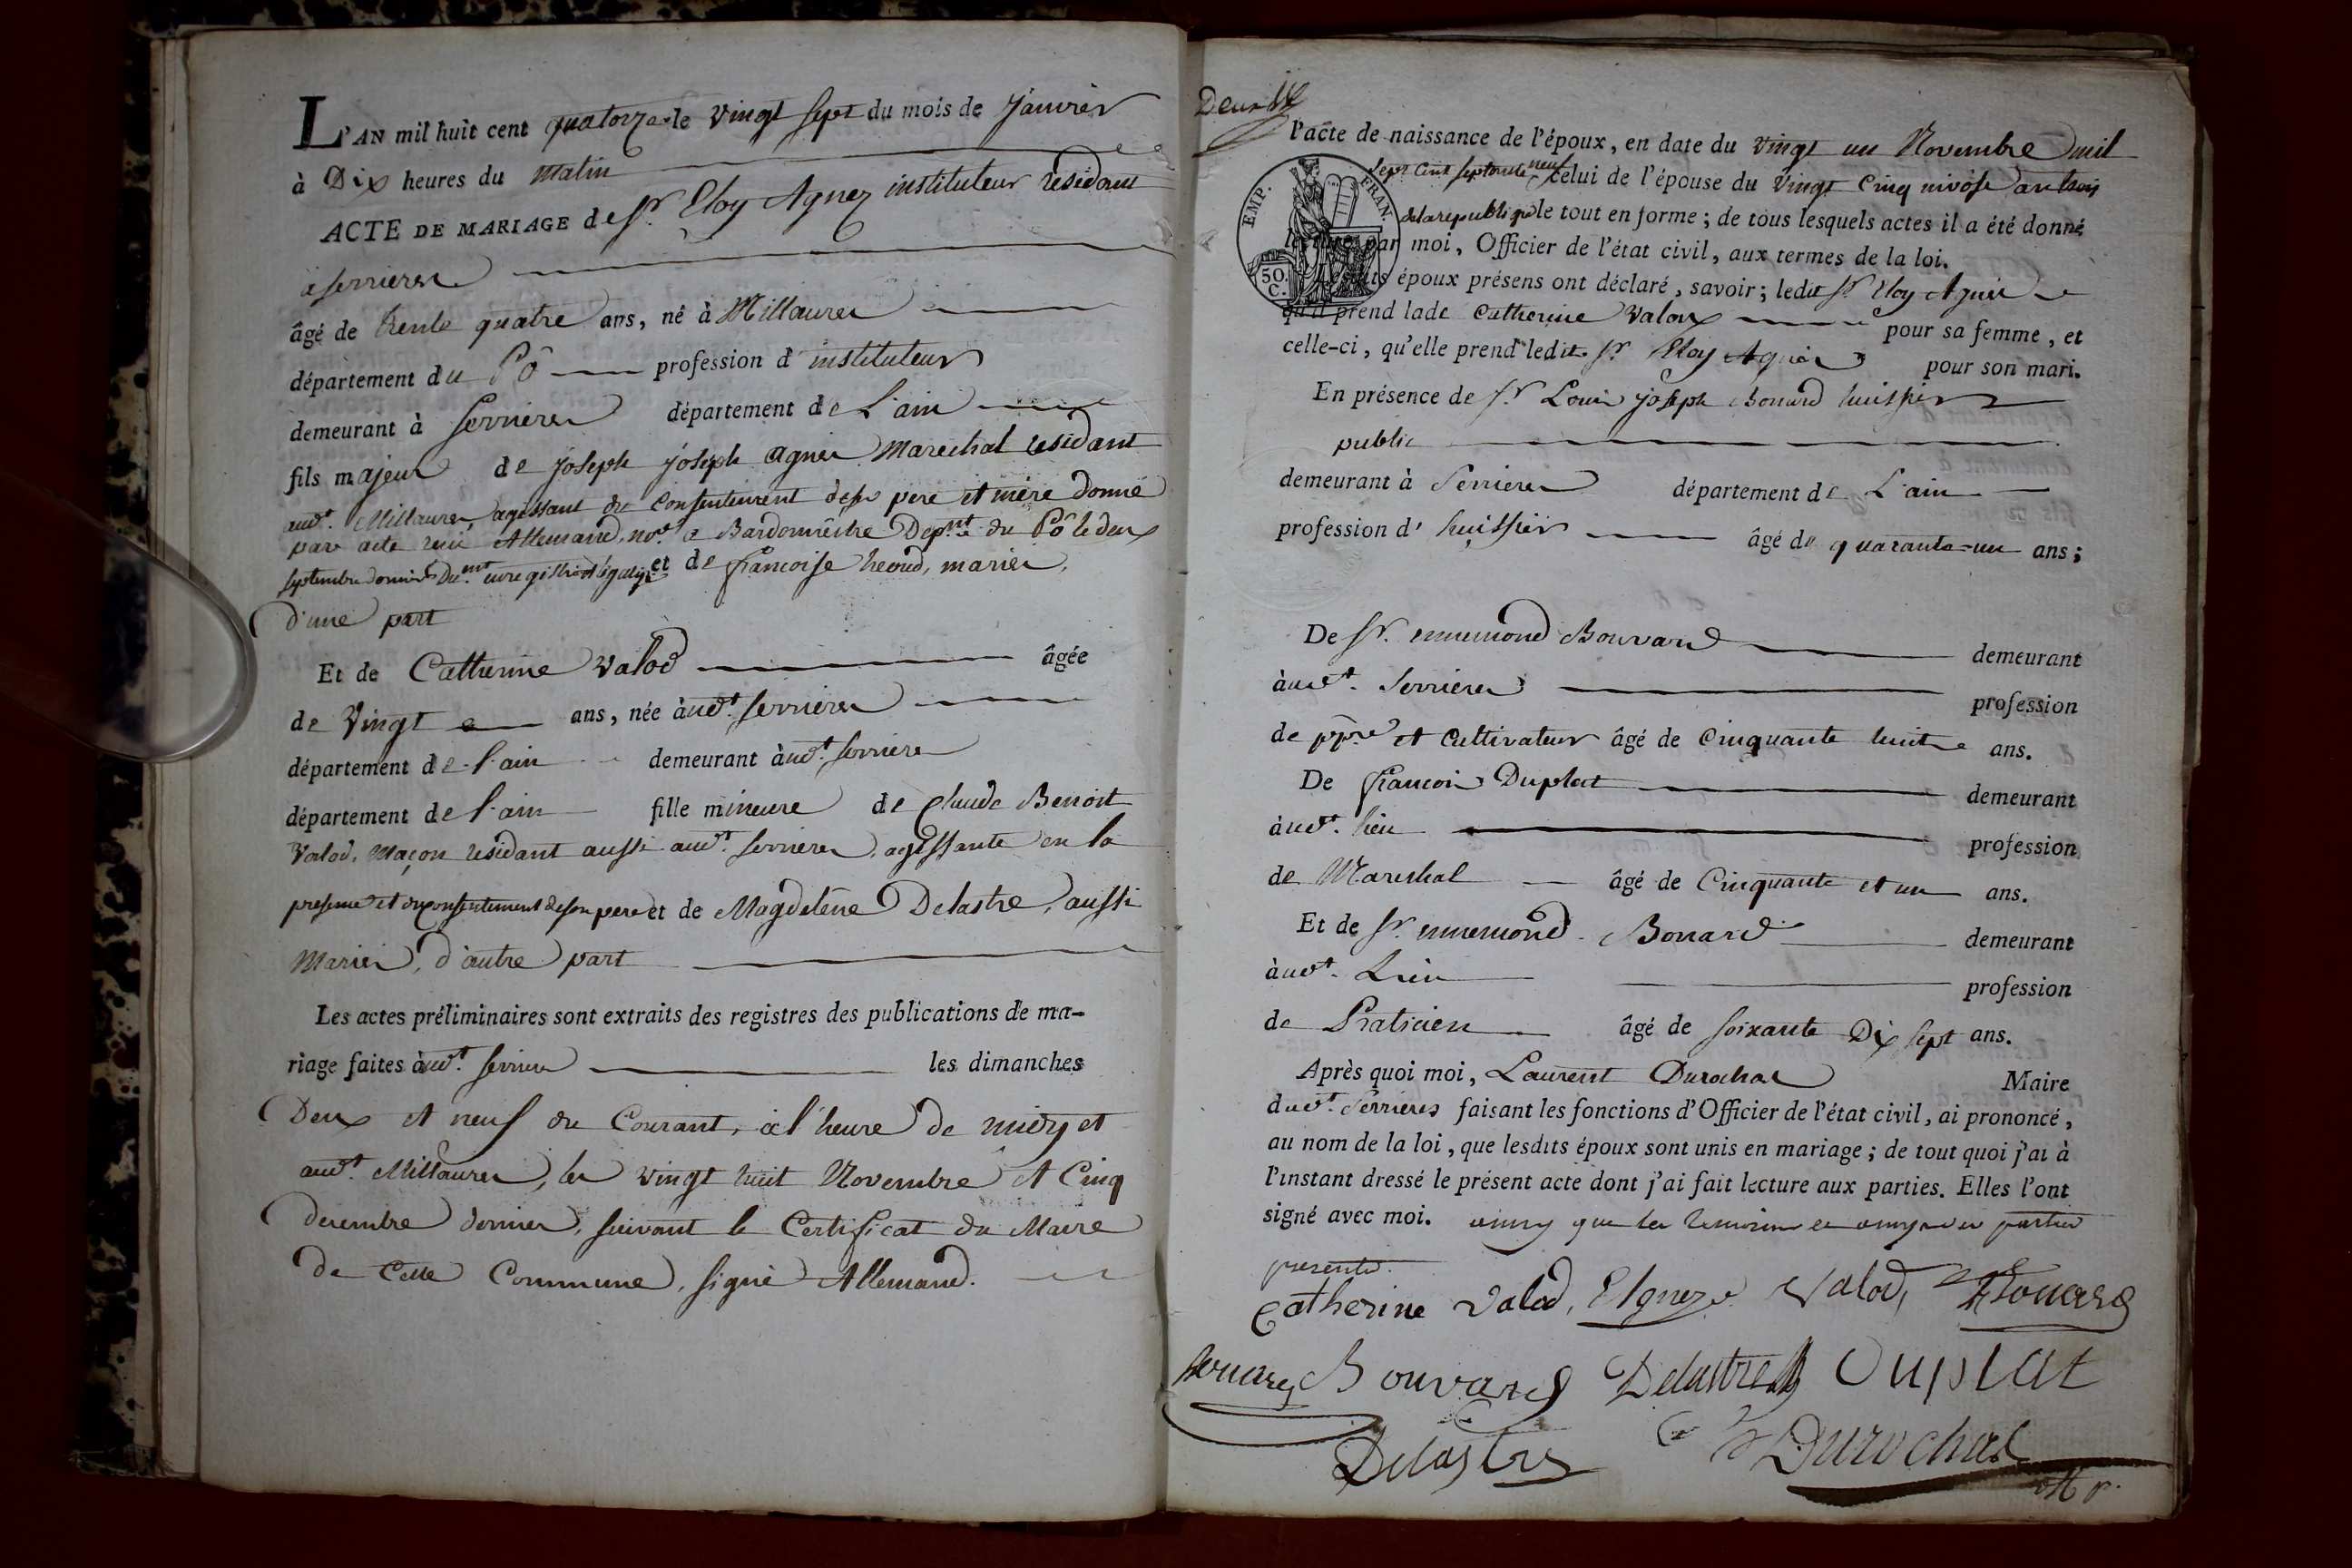 L'AN mil huit cent quatorze le vingt sept du mois de janvier
à Dix heures du matin
ACTE DE MARIAGE de Sr. Eloy Agnez instituteur residant
a serrieres
âgé de trente quatre ans, né à Millaures
département du Pô profession d'instituteur
demeurant à Serrieres département de L'ain
fils majeur de joseph joseph agnes Marechal residant
aud.t Millaures, agissant du Consentement de ses pere et mère donné
par acte recu Allemand, no.re a Bardonnêche Dep.nt du Pô le deux
septembre dernier Du.mt enregistré et légalisé et de francoise heoud, mariés,
d'une part
Et de Catherine Valod âgée
de Vingt ans, née àud.t serrieres
département de l'ain demeurant àud.t serriere
département de l'ain fille mineure de Claude Benoit
Valod, Maçon residant aussi aud.t serrieres, agissante en la
presence et du consentement de son pere et de Magdelêne Delastre, aussi
Mariés, d'autre part
Les actes préliminaires sont extraits des registres des publications de ma-
riage faites àud.t serriere les dimanches
Deux et neuf du Courant, à l'heure de midy et
aud.t Millaures, les vingt huit Novembre et Cinq
decembre dernier, suivant le Certificat du Maire
de Cette Commune, signé Allemand.
Deux
l'acte de naissance de l'époux, en date du vingt un Novembre mil
sept Cent septante neuf celui de l'épouse du vingt Cinq nivôse an trois
de la republique le tout en forme ; de tous lesquels actes il a été donné
lecture par moi, Officier de l'état civil, aux termes de la loi.
EMP. FRAN.
50. C.
époux présens ont déclaré, savoir ; ledit Sr. Eloy Agnés
qu'il prend lade Catherine Valoux pour sa femme, et
celle-ci, qu'elle prend ledit Sr. Eloy Agnés pour son mari.
En présence de Sr. Louis joseph Bonard huissier
public
demeurant à Serrieres département de L'ain
profession d'huissier âgé de quarante-un ans ;
De Sr. ennemond Bouvard demeurant
àud.t Serrieres profession
de pp.re et Cultivateur âgé de Cinquante huit ans.
De francois Duplat demeurant
àud.t lieu profession
de Mareschal âgé de Cinquante et un ans.
Et de Sr. ennemond Bonard demeurant
àud.t Lieu profession
de Praticien âgé de soixante Dix sept ans.
Après quoi moi, Laurent Durochat Maire
dud.t Serrieres faisant les fonctions d'Officier de l'état civil, ai prononcé,
au nom de la loi, que lesdits époux sont unis en mariage ; de tout quoi j'ai à
l'instant dressé le présent acte dont j'ai fait lecture aux parties. Elles l'ont
signé avec moi. ainsy que les temoins et parties
presents.
Catherine Valod, EAgnez Valod, Bonard
Bonard Bouvard Delastre Duplat
Delastre Durochat